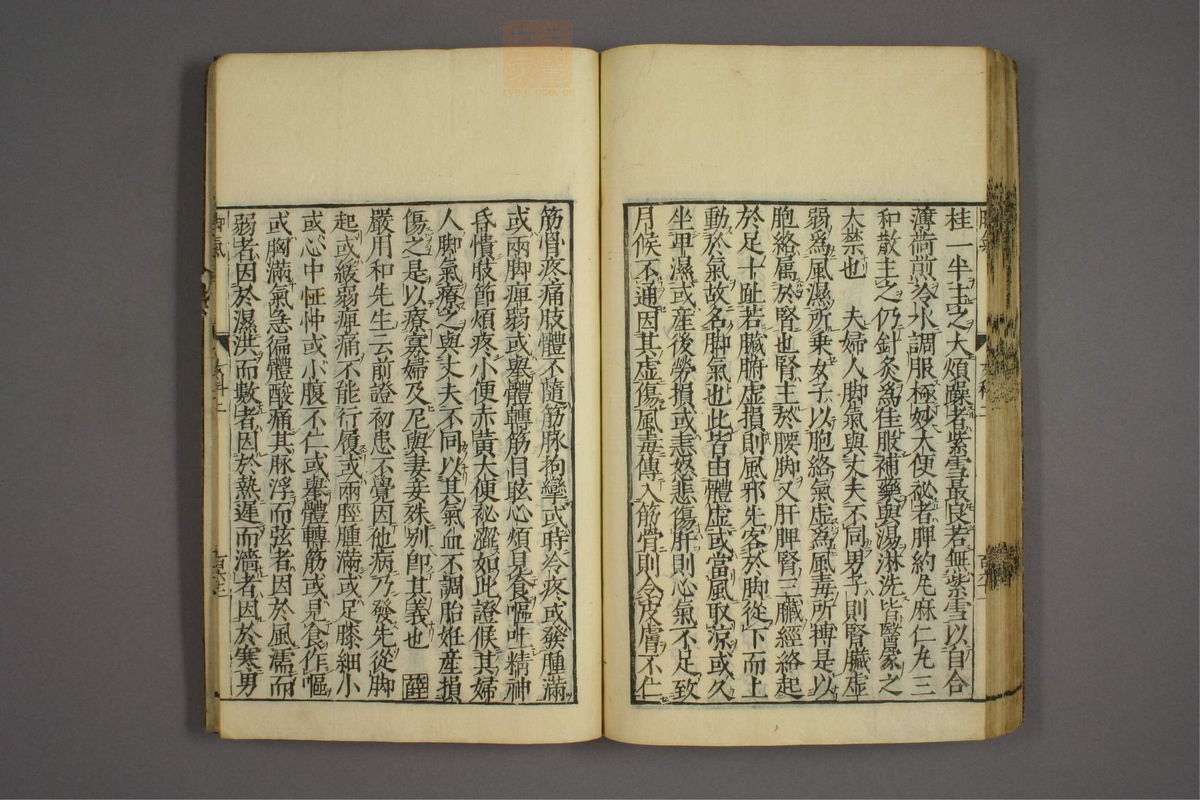 桂一半主之大煩躁者紫雪最良若無紫雪以自合
薄荷煎冷水調服極妙大便祕者脾約丸麻仁丸三
和散主之仍針灸爲佳服補藥與湯淋洗皆醫家之
大禁也　夫婦人脚氣與丈夫不同男子則腎臟虛
弱爲風濕所乗女子以胞絡氣虛爲風毒所搏是以
胞絡属於腎也腎主於腰脚又肝脾腎三臟經絡起
於足十趾若臟腑虛損則風邪先客於脚從下而上
動於氣故名脚氣也此皆由體虛或當風取凉或久
坐卑濕或産後勞損或恚怒悲傷肝則心氣不足致
月候不通因其虛傷風毒傳入筋骨則令皮膚不仁
筋骨疼痛肢體不隨筋脉拘攣或時冷疼或發腫滿
或兩脚痺弱或舉體轉筋目眩心煩見食嘔吐精神
昏憒肢節煩疼小便赤黃大便祕澁如此證候其婦
人脚氣療之與丈夫不同以其氣血不調胎妊産損
傷之是以療寡婦及尼與妻妾殊別卽其義也　薛
嚴用和先生云前證初患不覺因他病乃發先從脚
起或緩弱痺痛不能行履或兩脛腫滿或足膝細小
或心中怔忡或小腹不仁或舉體轉筋或見食作嘔
或胸滿氣急徧體酸痛其脉浮而弦者因於風濡而
弱者因於濕洪而數者因於熱遲而濇者因於寒男
脚氣
女科二